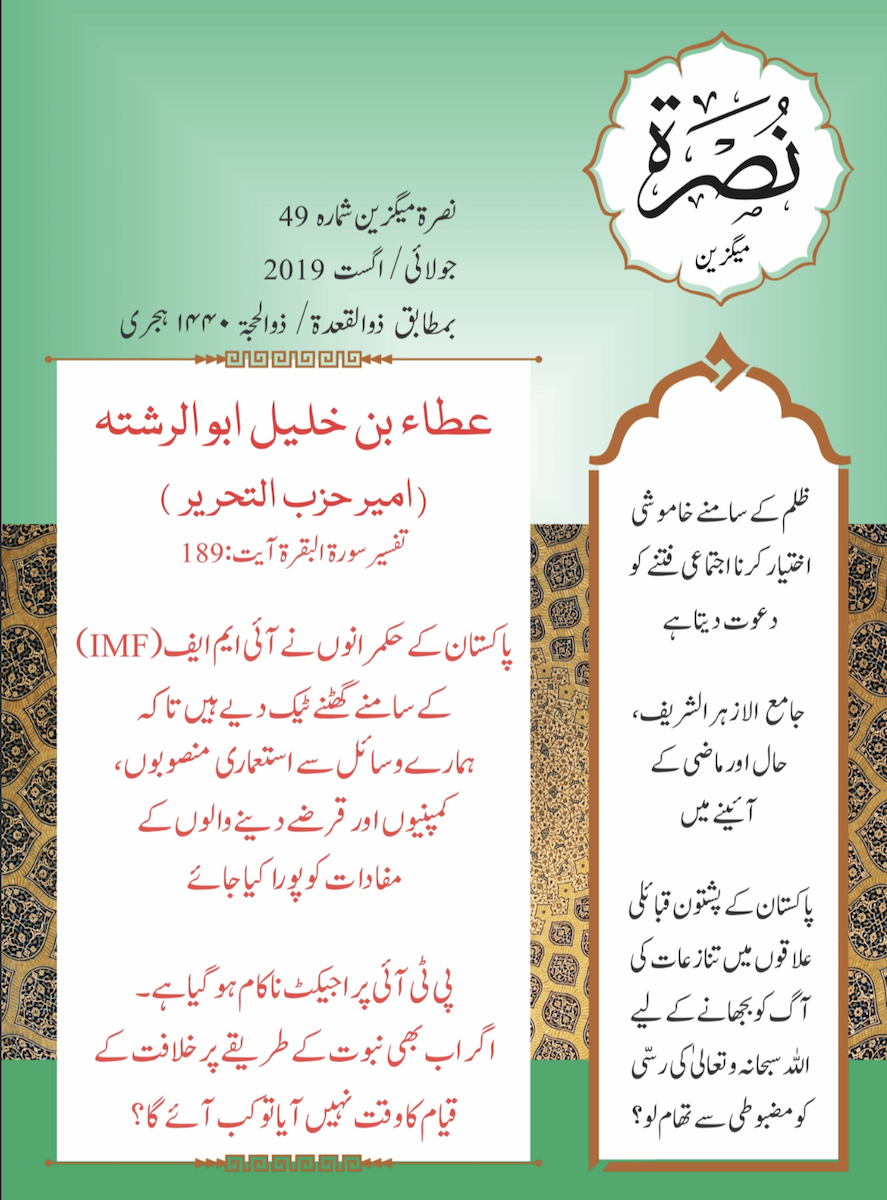 نُصرَة
میگزین
نصرۃ میگزین شمارہ 49
جولائی / اگست 2019
بمطابق ذوالقعدۃ / ذوالحجۃ ۱۴۴۰ ہجری
ظلم کے سامنے خاموشی
اختیار کرنا اجتماعی فتنے کو
دعوت دیتا ہے
جامع الازہر الشریف،
حال اور ماضی کے
آئینے میں
پاکستان کے پشتون قبائلی
علاقوں میں تنازعات کی
آگ کو بجھانے کے لیے
اللہ سبحانہ وتعالیٰ کی رسّی
کو مضبوطی سے تھام لو؟
عطاء بن خلیل ابو الرشتہ
(امیر حزب التحریر )
تفسیر سورۃ البقرۃ آیت:189
پاکستان کے حکمرانوں نے آئی ایم ایف (IMF)
کے سامنے گھٹنے ٹیک دیے ہیں تاکہ
ہمارے وسائل سے استعماری منصوبوں،
کمپنیوں اور قرضے دینے والوں کے
مفادات کو پورا کیا جائے
پی ٹی آئی پراجیکٹ ناکام ہو گیا ہے۔
اگر اب بھی نبوت کے طریقے پر خلافت کے
قیام کا وقت نہیں آیا تو کب آئے گا؟